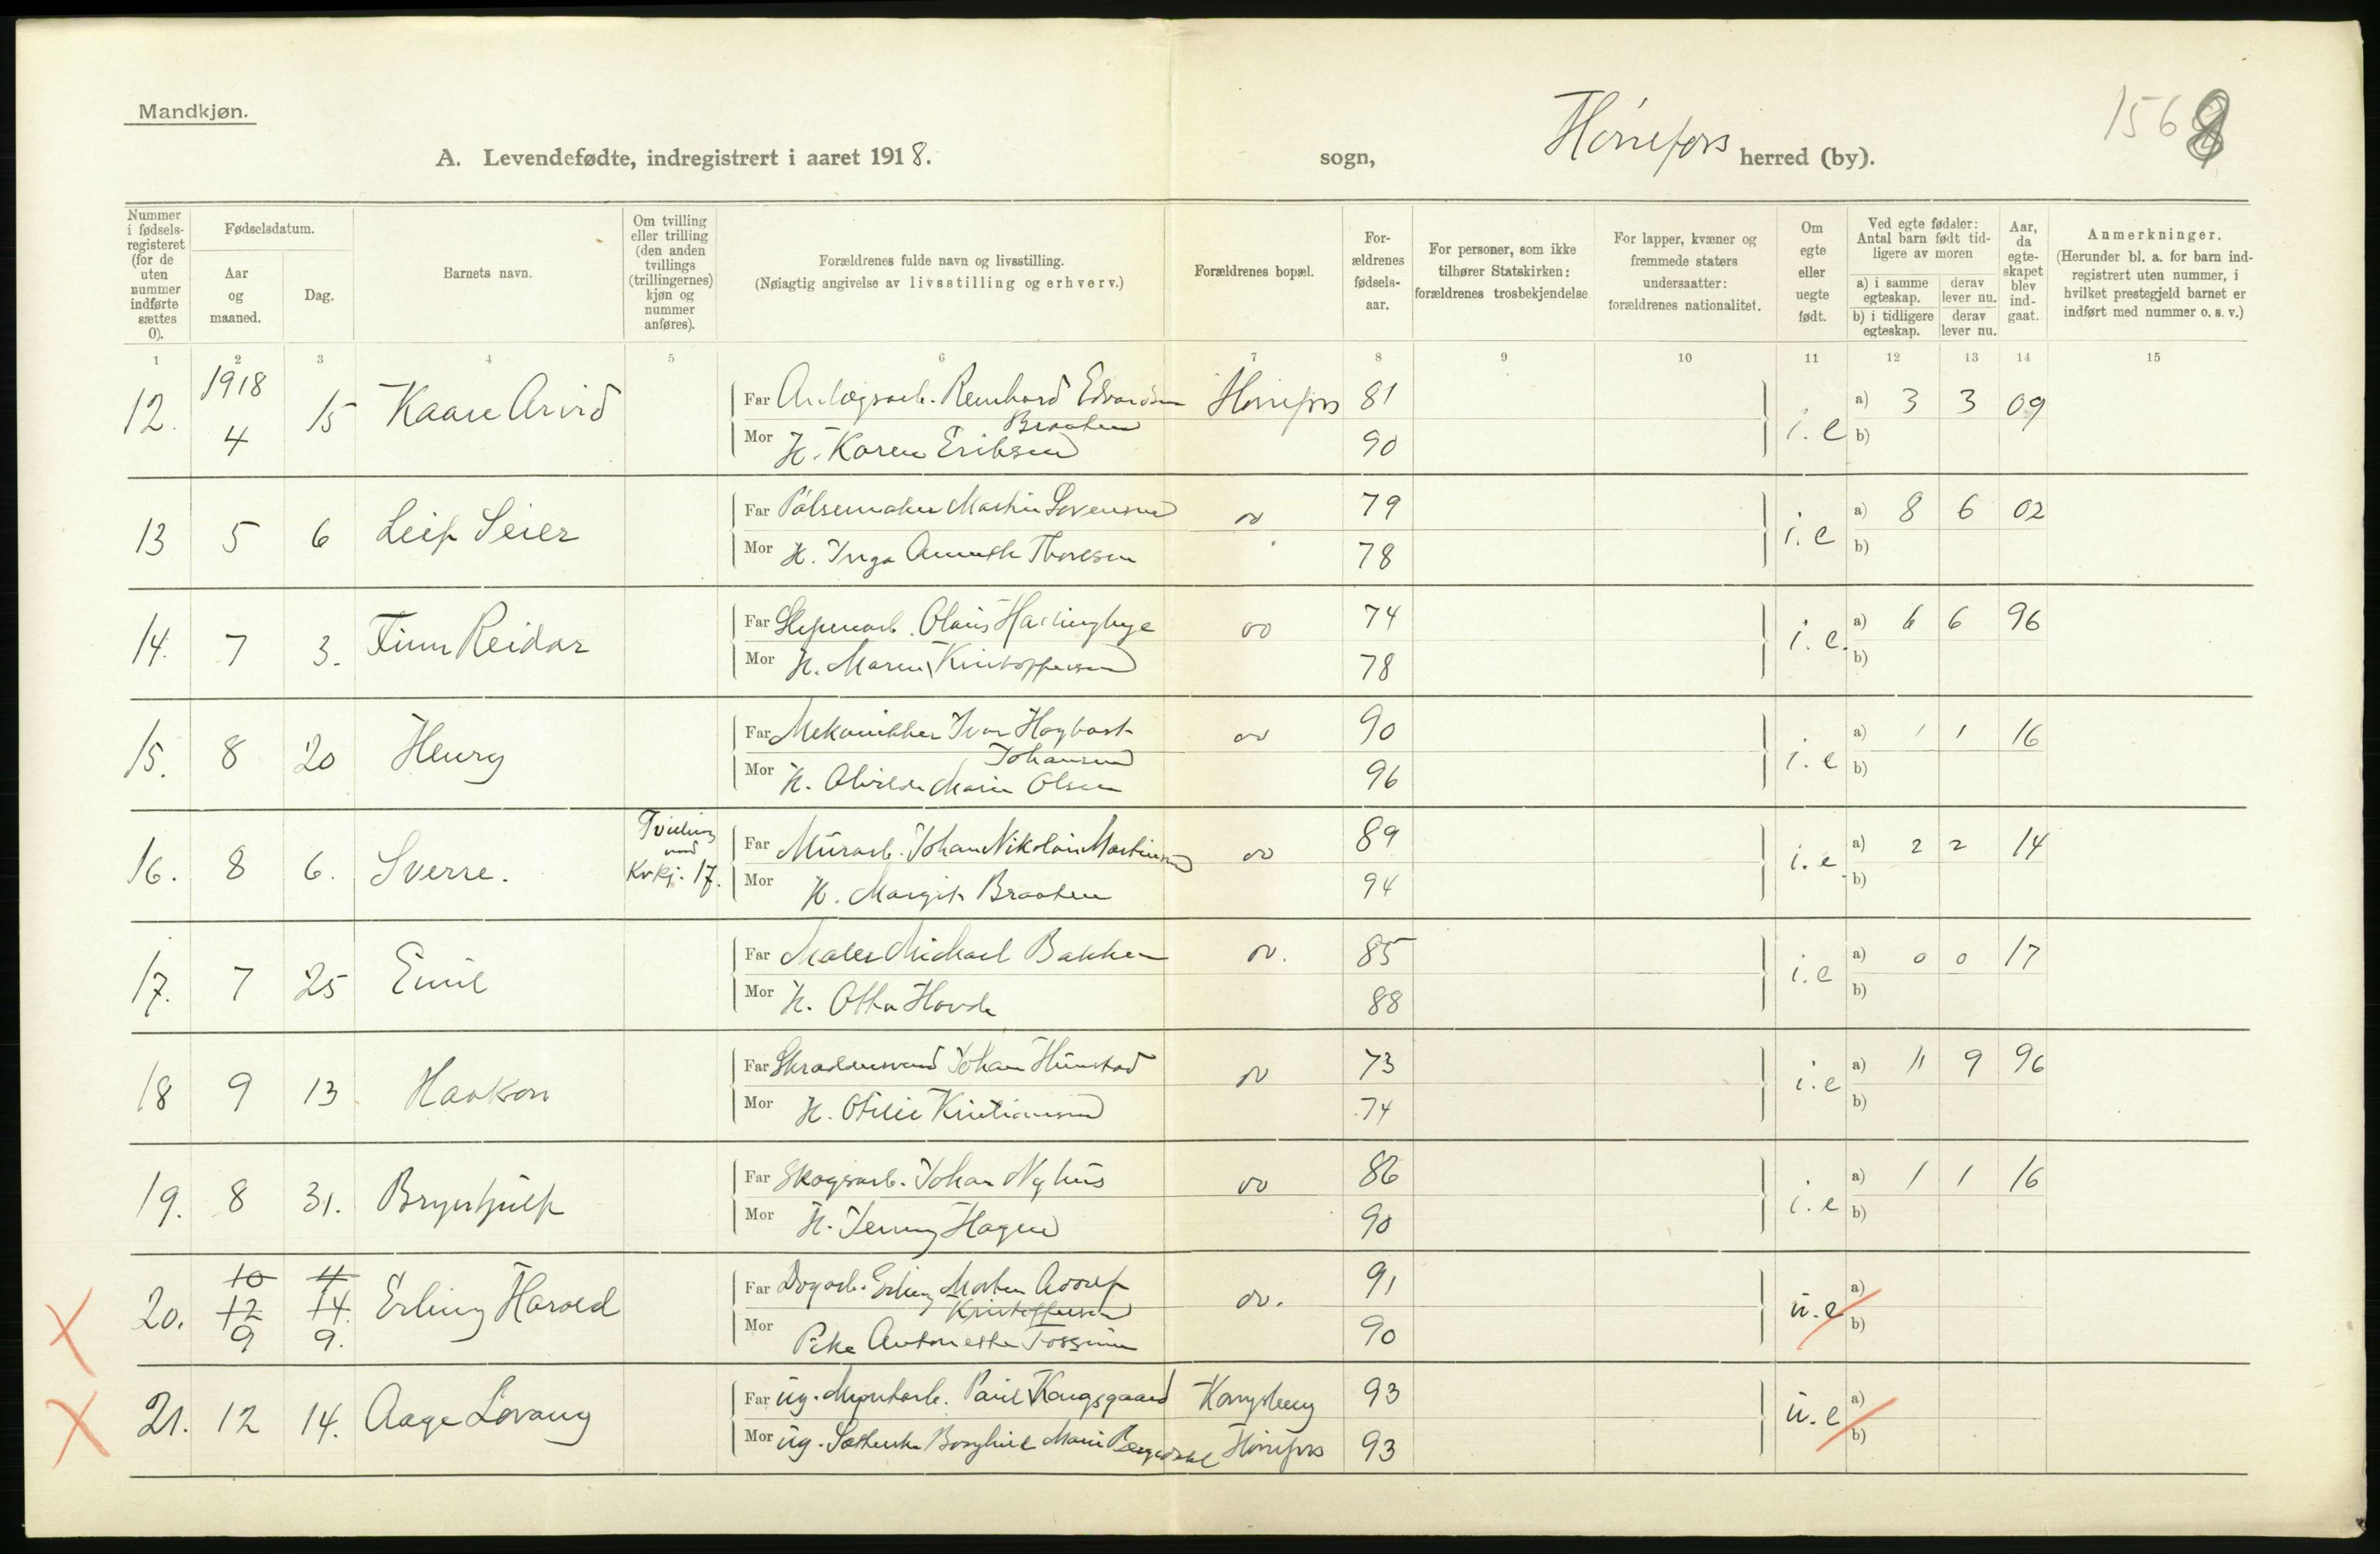 Mandkjøn.
1568
A. Levendefødte, indregistrert i aaret 1918. sogn, Hønefoss herred (by).
Nummer i fødsels-registeret (for de uten nummer indførte sættes 0).
Fødselsdatum.
Aar og maaned.
Dag.
Barnets navn.
Om tvilling eller trilling (den anden tvillings (trillingernes) kjøn og nummer anføres).
Forældrenes fulde navn og livsstilling.
(Nøiagtig angivelse av livsstilling og erhverv.)
Forældrenes bopæl.
For-ældrenes fødsels-aar.
For personer, som ikke tilhører Statskirken: forældrenes trosbekjendelse
For lapper, kvæner og fremmede staters undersaatter: forældrenes nationalitet.
Om egte eller uegte født.
Ved egte fødsler: Antal barn født tid-ligere av moren
a) i samme egteskap. derav lever nu.
b) i tidligere egteskap. derav lever nu.
Aar, da egte-skapet blev ind-gaat.
Anmerkninger.
(Herunder bl. a. for barn ind-registrert uten nummer, i hvilket prestegjeld barnet er indført med nummer o. s. v.)
1 2 3 4 5 6 7 8 9 10 11 12 13 14 15
12. 1918 4 15 Kaare Arvid
Far Anlægsarb. Reinhard Edvardsen Braaten Hønefoss 81
Mor H. Karen Eriksen 90
i. e a) 3 3 09
b)
13 5 6 Leif Seier
Far Pølsemaker Martin Sørensen do 79
Mor H. Inga Annette Thoresen 78
i. e a) 8 6 02
b)
14. 7 3. Finn Reidar
Far Sliperiarb. Olaus Hallingbye do 74
Mor H. Maren Kristoffersen 78
i. e. a) 6 6 96
b)
15. 8 20 Henry
Far Mekaniker Ivar Hagbart Johansen do 90
Mor H. Olvilde Marie Olsen 96
i. e a) 1 1 16
b)
16. 8 6. Sverre. Tvilling med Kvkj. 17.
Far Murarb. Johan Nikolai Martinsen do 89
Mor H. Margit Braaten 94
i. e. a) 2 2 14
b)
17. 7 25 Emil
Far Maler Michael Bakken do. 85
Mor H. Otha Hovde 88
i. e a) 0 0 17
b)
18 9 13 Haakon
Far Skræddersvend Johan Hunstad do 73
Mor H. Otilie Kristiansen 74
i. e a) 11 9 96
b)
19. 8 31. Brynhjulf
Far Skogsarb. Johan Nyhus do 86
Mor H. Jenny Hagen 90
i. e a) 1 1 16
b)
20. 10 12 9 11 14. 9. Erling Harald
Far Dagarb. Erling Morten Adolf Kristoffersen do. 91
Mor Pike Antonette Fossum 90
u. e a)
b)
21. 12 14. Aage Lovang
Far ug. Myntarb. Paul Kongsgaard Kongsberg 93
Mor ug. Borghild Marie Bergedahl Hønefoss 93
u. e a)
b)